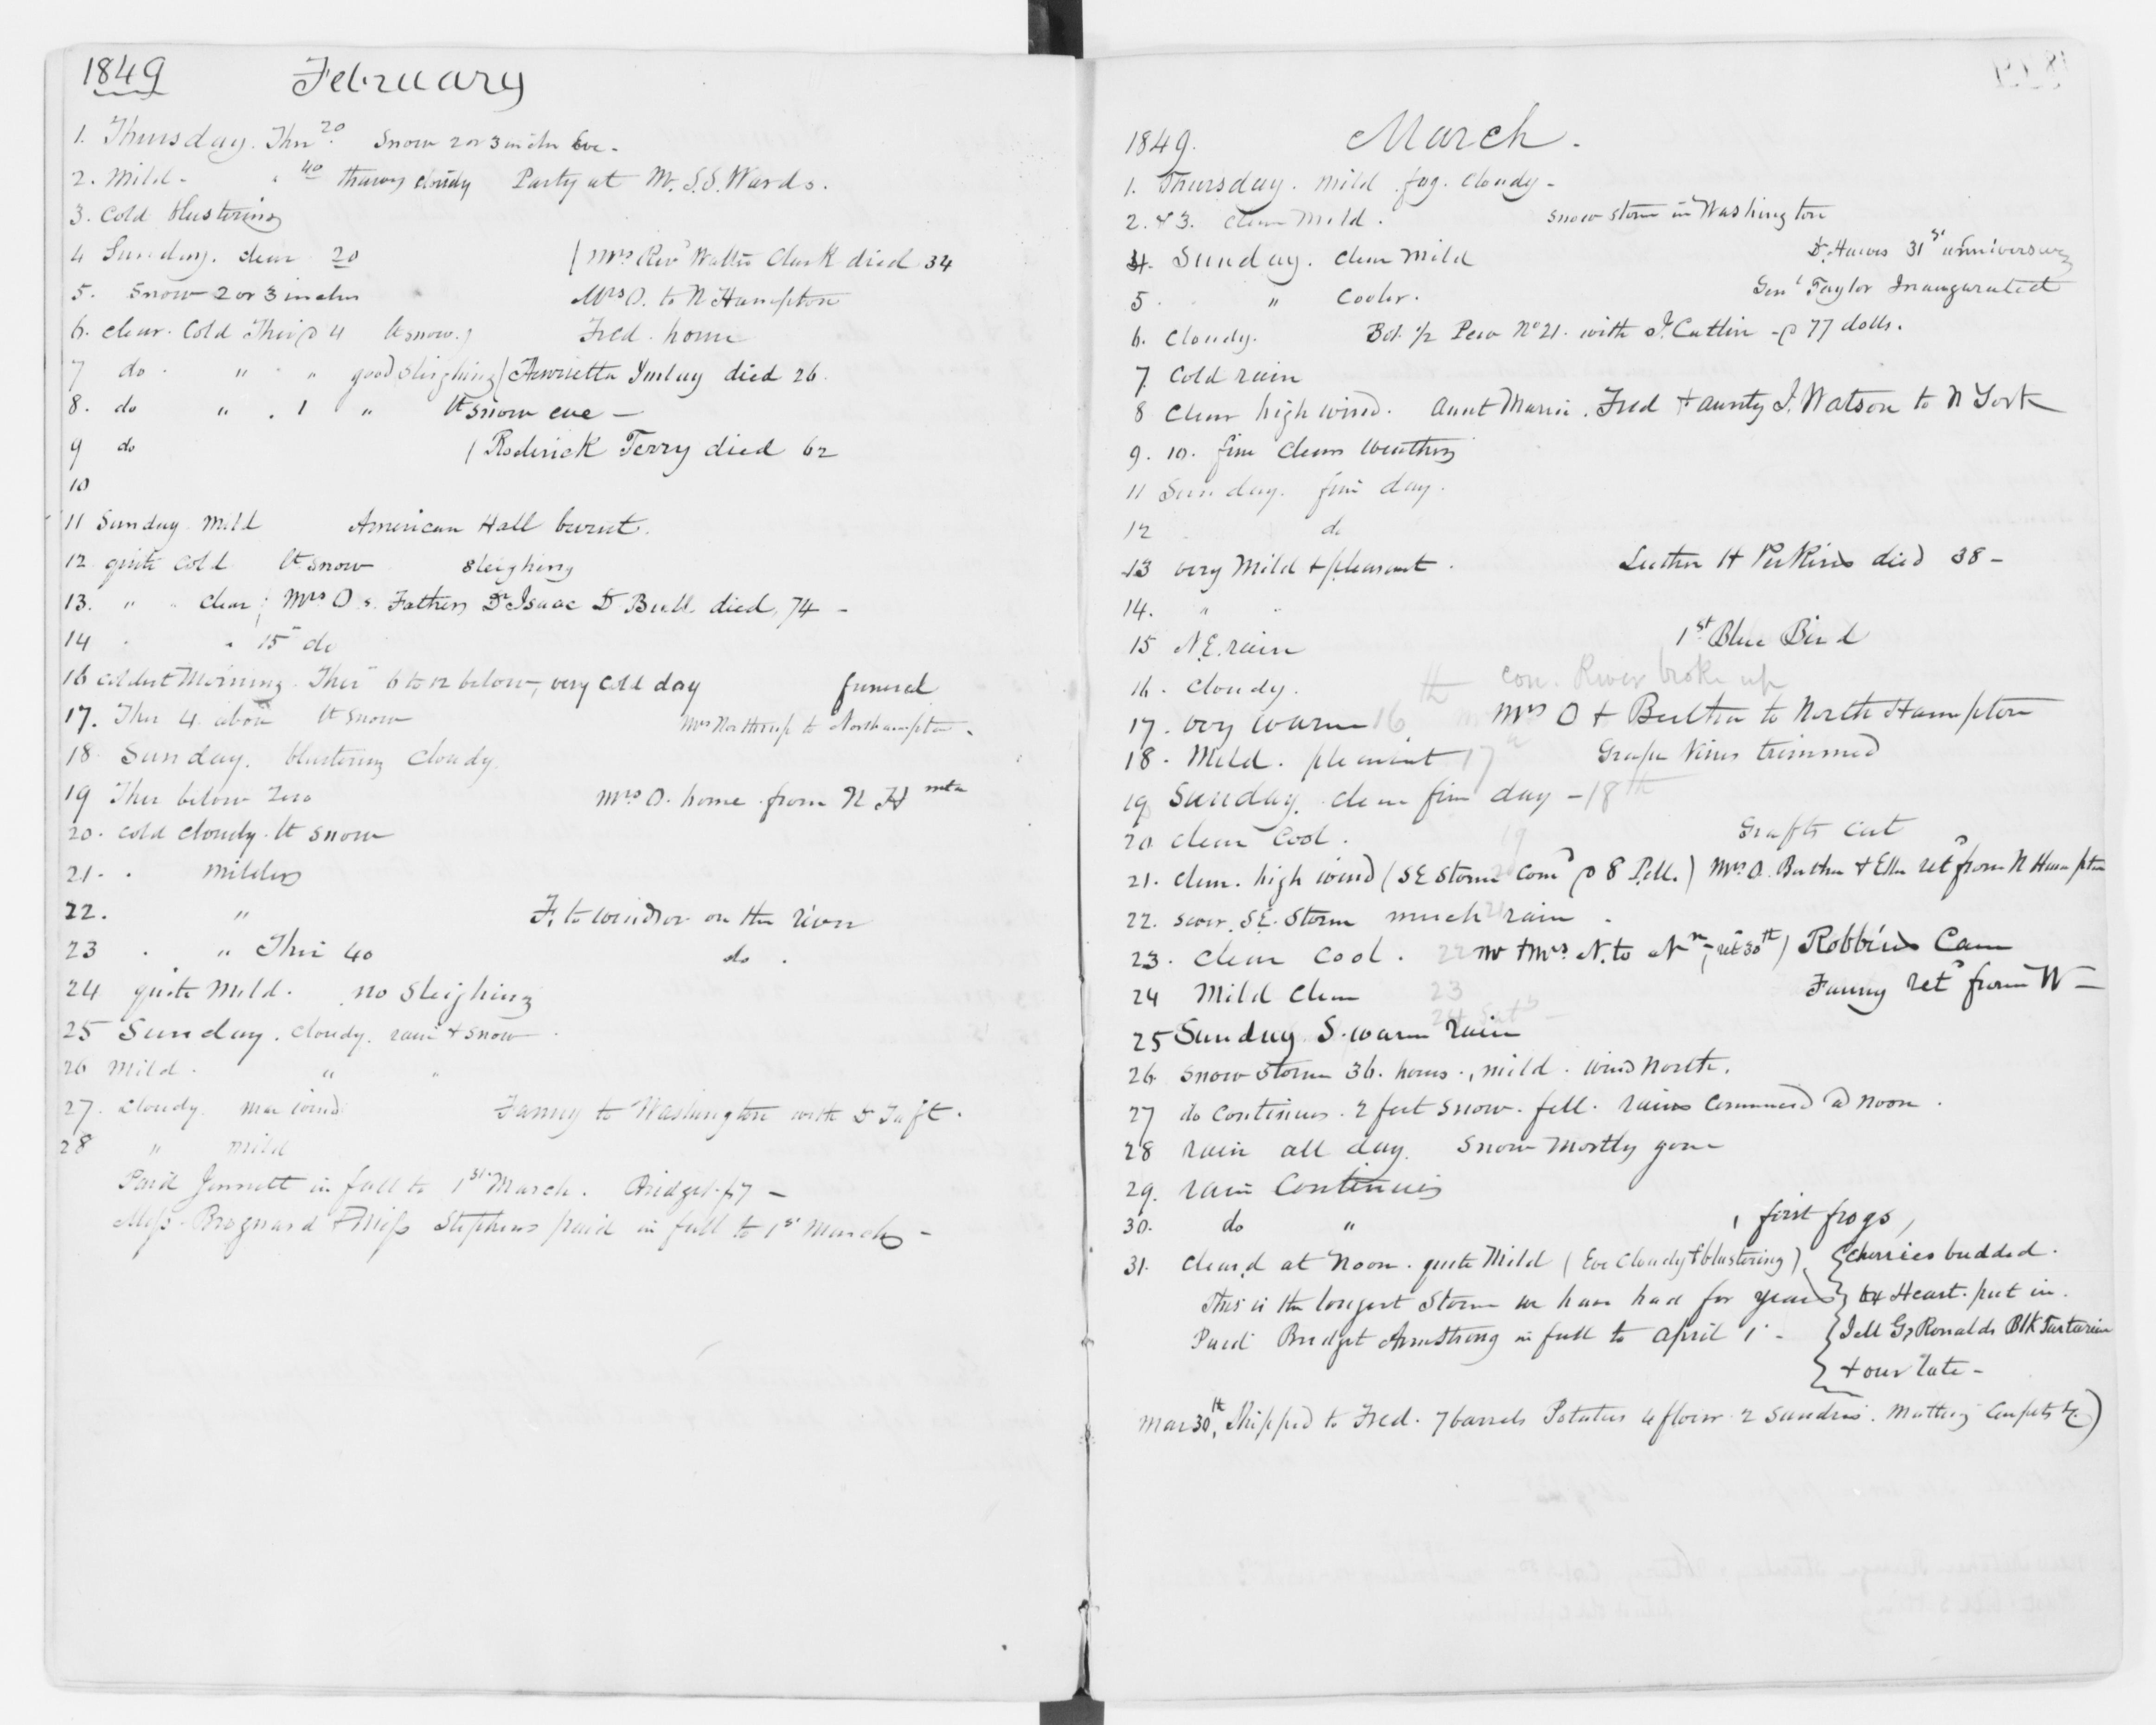 1849 February
1. Thursday. Thr 20. Snow 2 or 3 inches Eve.
2. Mild. 40 thawy cloudy Party at Mr. S.S. Wards.
3. Cold blustering
4 Sunday. clear 20 (Mrs Revd Walter Clark died 34
5. Snow 2 or 3 inches Mrs O. to N Hampton
6. clear. Cold Thr @ 4 lt snow.) Fred. home
7 do. " " good sleighing / Henrietta Imlay died 26.
8. do " . 1 " lt snow eve —
9 do / Roderick Terry died 62
10
11 Sunday Mild American Hall burnt.
12 quite cold lt snow sleighing
13. " " clear; Mrs O s. Father Dr Isaac D Bull died, 74 -
14 . . 15 do
16 coldest Morning. Thr 6 to 12 below, very cold day funeral
17. Thr 4 above lt snow Mrs Northrup to Northampton.
18 Sunday. blustering cloudy
19 Thr below Zero Mrs O. home from N H mtn
20. cold cloudy. lt snow
21. . milder
22. " F. to Windsor on the river
23 . " Thr 40 do .
24 quite mild. no sleighing
25 Sunday. cloudy. rain & snow
26 Mild. " "
27. cloudy. wind Fanny to Washington with Dr Taft.
28 " mild
Paid Jennett in full to 1st March. Bridget $7 —
Miss Brognard & Miss Stephens paid in full to 1st March —
1849. March.
1. Thursday. mild. fog. cloudy -
2. & 3. clear mild. snow storm in Washington
4. Sunday. clear mild Dr. Hawes 31st anniversary
5. " Cooler. Genl Taylor Inaugurated
6. Cloudy. Bot. 1/2 Pew No 21. with J. Catlin @ 77 dolls.
7. Cold rain
8 Clear high wind. Aunt Maria. Fred & aunty J. Watson to N York
9. 10. fine clear weather
11 Sunday. fine day.
12 do
13 very mild & pleasant. Luther H Perkins died 38 -
14. " "
15 N.E. rain 1st Blue Bird
16. Cloudy. th con. River broke up
17. very warm 16 Mrs O & Buttha to North Hampton
18. Mild. pleasant 17 Grape Vines trimmed
19 Sunday. clear fine day - 18th
20 clear cool. 19 Grafts cut
21. clear. high wind (SE storm comd @ 8 P.M.) Mrs O. Buttha & Ellen retd from N Hampton
22. sevr. S.E. Storm much 21 rain .
23. clear cool. 22 Mr & Mrs N. to Nn, ret 30th) Robbins Came
24 Mild clear 23 Fanny retd from W —
24 Sat
25 Sunday S. warm rain
26. snow storm 36. hours., mild. wind North.
27 do continues. 2 feet snow. fell. rain commencd @ noon.
28 rain all day. snow mostly gone
29. rain continues
30. do " , first frogs,
31. cleard at Noon. quite mild (Eve cloudy & blustering) {Cherries budded.
This is the longest storm we have had for years } Heart. put in.
Paid Bridget Armstrong in full to April 1 - { Ronalds Blk Tartarian
} & our late -
Mar 30th, Shipped to Fred. 7 barrels Potatoes 4 flour 2 sundries. Matting Carpets &c)